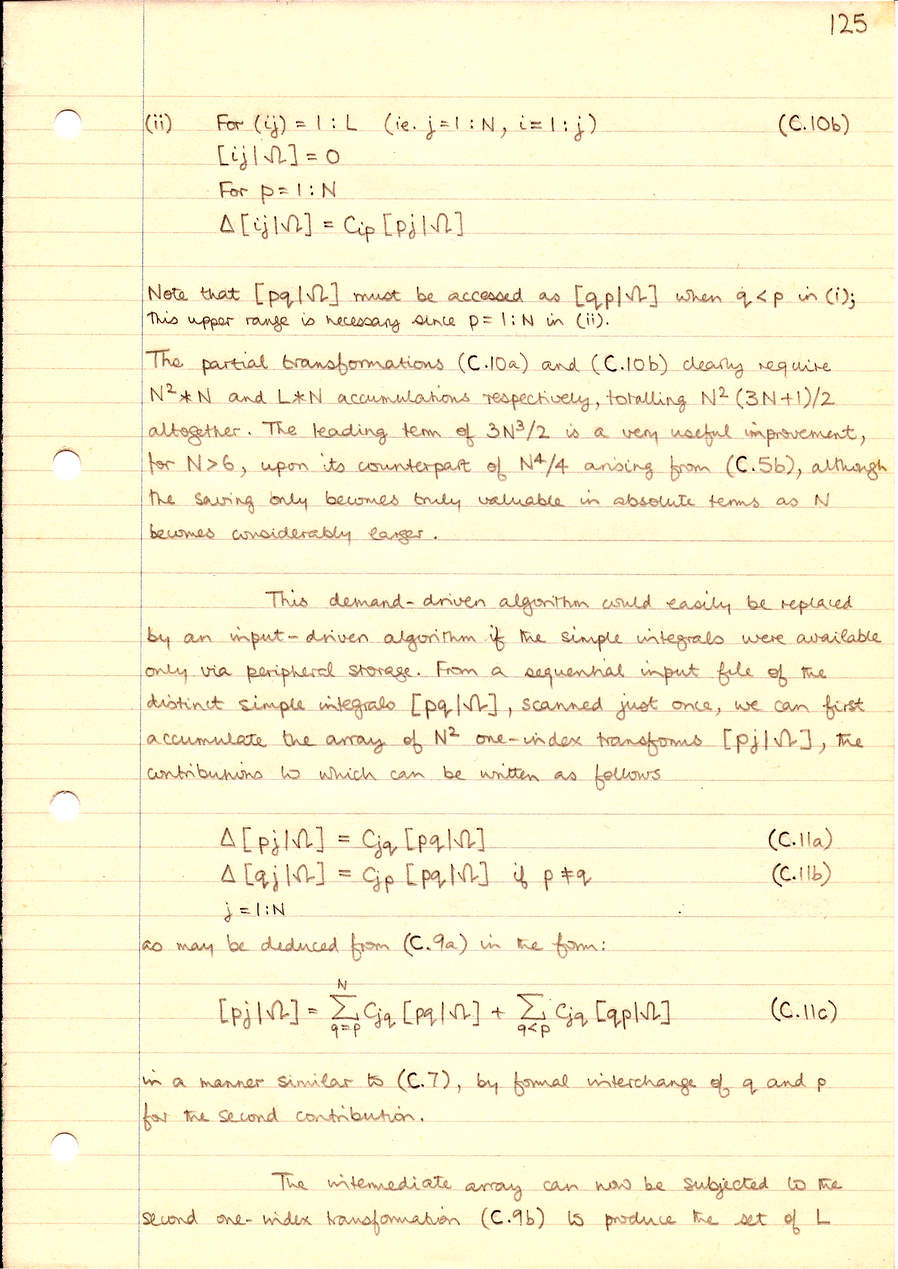 125
(ii) For (ij) = 1 : L (ie. j = 1 : N, i = 1 : j) (C.10b)
[ij|Ω] = 0
For p = 1 : N
Δ[ij|Ω] = Cip [pj|Ω]
Note that [pq|Ω] must be accessed as [qp|Ω] when q < p in (i);
this upper range is necessary since p = 1 : N in (ii).
The partial transformations (C.10a) and (C.10b) clearly require
N² * N and L * N accumulations respectively, totalling N² (3N+1)/2
altogether. The leading term of 3N³/2 is a very useful improvement,
for N > 6, upon its counterpart of N⁴/4 arising from (C.5b), although
the saving only becomes truly valuable in absolute terms as N
becomes considerably larger.
This demand-driven algorithm could easily be replaced
by an input-driven algorithm if the simple integrals were available
only via peripheral storage. From a sequential input file of the
distinct simple integrals [pq|Ω], scanned just once, we can first
accumulate the array of N² one-index transforms [pj|Ω], the
contributions to which can be written as follows
Δ[pj|Ω] = Cjq [pq|Ω] (C.11a)
Δ[qj|Ω] = Cjp [pq|Ω] if p ≠ q (C.11b)
j = 1 : N
as may be deduced from (C.9a) in the form:
[pj|Ω] = N∑q=p Cjq [pq|Ω] + ∑q<p Cjq [qp|Ω] (C.11c)
in a manner similar to (C.7), by formal interchange of q and p
for the second contribution.
The intermediate array can now be subjected to the
second one-index transformation (C.9b) to produce the set of L